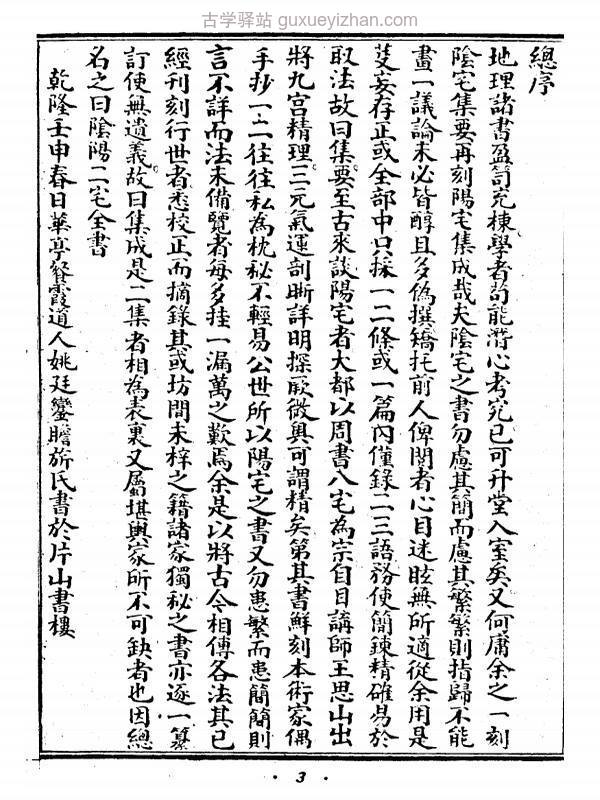 古学驿站 guxueyizhan.com
總序
地理諸書盈笥充棟學者苟能潛心考究已可升堂入室矣又何庸余之一刻
陰宅集要再刻陽宅集成哉夫陰宅之書勿慮其簡而慮其繁繁則指歸不能
畫一議論未必皆醇且多偽撰矯托前人俾閱者心目迷眩無所適從余用是
芟妄存正或全部中只採一二條或一篇內僅錄二三語務使簡鍊精確易於
取法故曰集要至古來談陽宅者大都以周書八宅為宗自目講師王思山出
將九宮精理三元氣運剖晰詳明探厥微奧可謂精矣第其書鮮刻本術家偶
手抄一二往往私為枕秘不輕易公世所以陽宅之書又勿患繁而患簡簡則
言不詳而法未備覽者每多挂一漏萬之歎焉余是以將古今相傳各法其已
經刊刻行世者悉校正而摘錄其或坊間未梓之籍諸家獨秘之書亦逐一纂
訂使無遺義故曰集成是二集者相為表裏又屬堪輿家所不可缺者也因總
名之曰陰陽二宅全書
乾隆壬申春日華亭餐霞道人姚廷鑾瞻旂氏書於片山書樓
· 3 ·